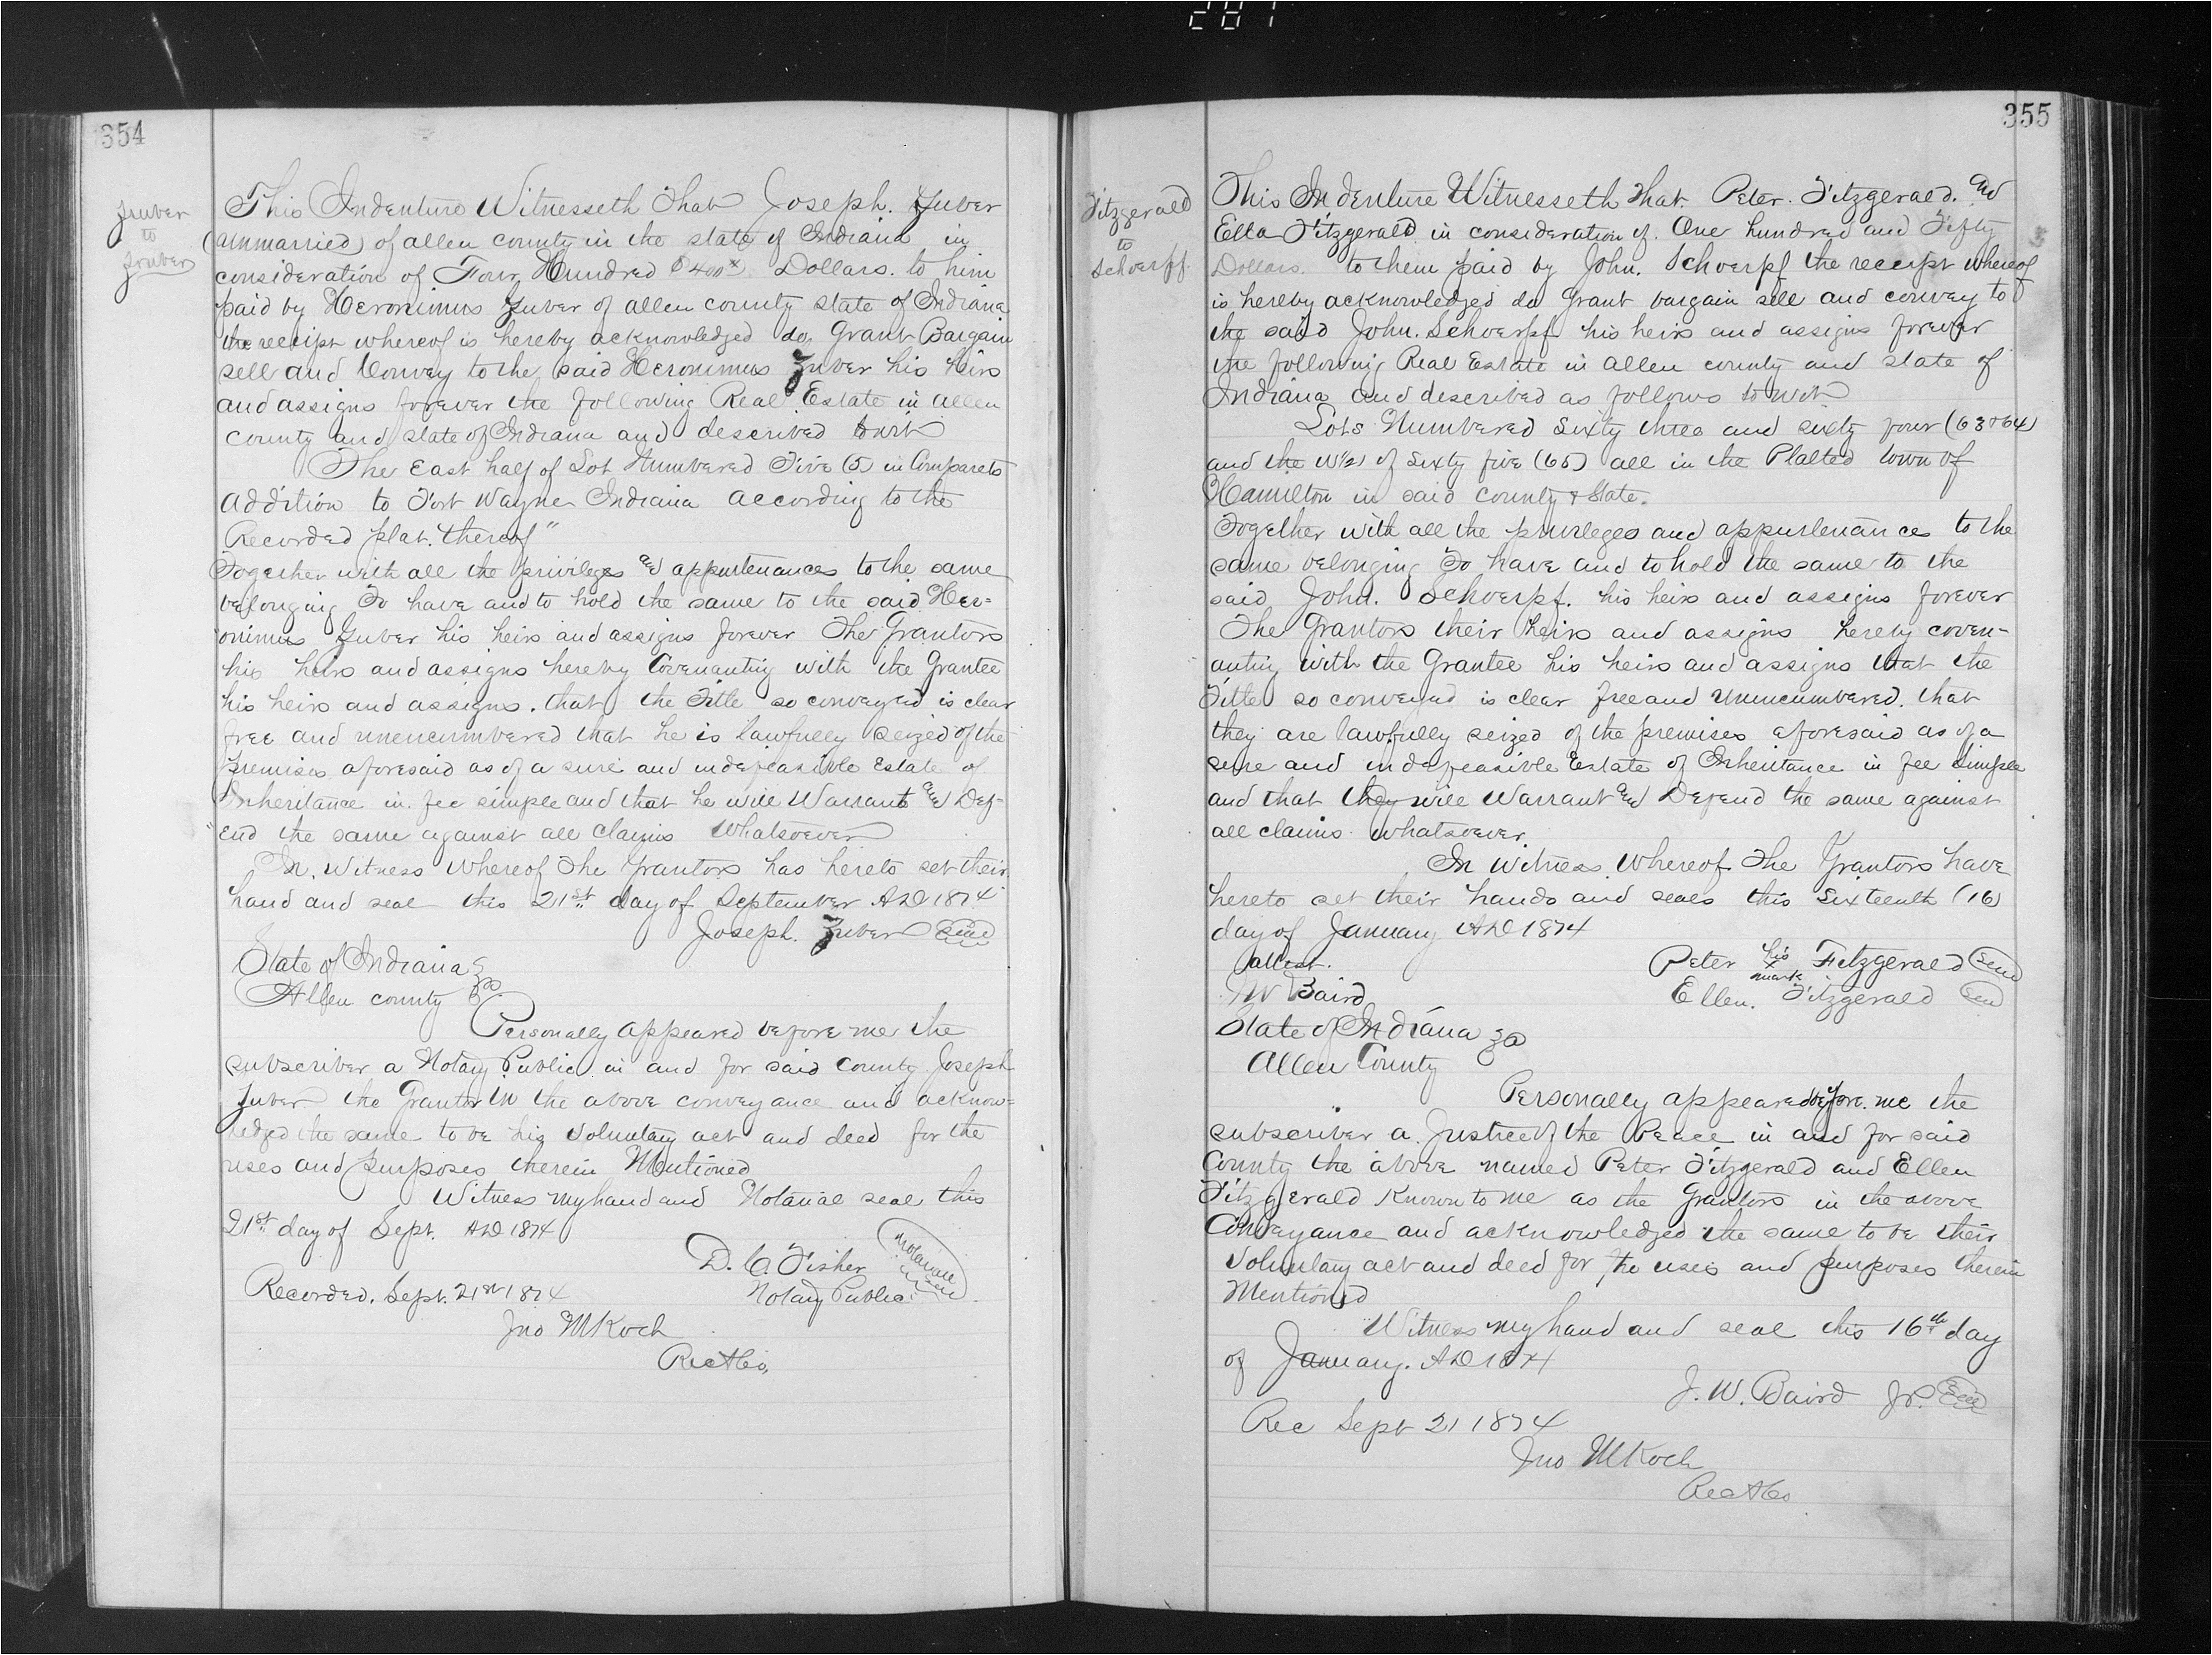 281
354
Zuber
to
Zuber
This Indenture Witnesseth That Joseph. Zuber
(unmarried) of allen county in the state of Indiana in
consideration of Four Hundred $400 Dollars. to him
paid by Heronimus Zuber of allen county state of Indiana
the receipt whereof is hereby acknowledged do Grant Bargain
sell and Convey to the said Heronimus Zuber his heirs
and assigns forever the following Real Estate in allen
county and state of Indiana and described towit
The East half of Lot Numbered Five (5) in Comparets
addition to Fort Wayne Indiana according to the
Recorded plat. thereof"
Together with all the privileges and appurtenances to the same
belonging To have and to hold the same to the said Her=
onimus Zuber his heirs and assigns forever The Grantors
his heirs and assigns hereby Covenanting with the Grantee
his heirs and assigns. that the Title so conveyed is clear
free and unencumbered that he is lawfully seized of the
premises aforesaid as of a sure and indefeasible Estate of
Inheritance in fee simple and that he will Warrant and Def-
end the same against all claims Whatsoever
In. Witness Whereof The Grantors has hereto set their
hand and seal this 21st day of September AD 1874
Joseph. Zuber Seal
State of Indiana
Allen county ss
Personally appeared before me the
subscriber a Notary Public in and for said County Joseph
Zuber the Grantor in the above conveyance and acknow=
ledged the same to be his voluntary act and deed for the
uses and purposes therein Mentioned
Witness my hand and Notarial seal this
21st day of Sept. AD 1874
D. C. Fisher Notarial Seal
Notary Public
Recorded. Sept. 21st 1874
Jno M Koch
RecACo,
355
Fitzgerald
to
Schoerpf
This Indenture Witnesseth that. Peter. Fitzgerald. and
Ella Fitzgerald in consideration of. One hundred and Fifty
Dollars. to them paid by John. Schoerpf the receipt whereof
is hereby acknowledged do Grant bargain sell and convey to
the said John. Schoerpf his heirs and assigns forever
the following Real Estate in allen county and state of
Indiana and described as follows to wit
Lots Numbered Sixty three and sixty four (63 & 64)
and the W1/2 of Sixty five (65) all in the Platted town of
Hamilton in said county & State.
Together with all the privileges and appurtenances to the
same belonging To have and to hold the same to the
said John. Schoerpf. his heirs and assigns forever
The Grantors their heirs and assigns hereby coven-
anting with the Grantee his heirs and assigns that the
Title so conveyed is clear free and Unencumbered. that
they are lawfully seized of the premises aforesaid as of a
sure and indefeasible Estate of Inheritance in fee Simple
and that they will Warrant and Defend the same against
all claims whatsoever.
In Witness Whereof The Grantors have
hereto set their hands and seals this Sixteenth (16)
day of January AD 1874
attest. Peter his x mark Fitzgerald Seal
JW Baird Ellen. Fitzgerald Seal
State of Indiana ss
Allen County
Personally appeared before. me the
subscriber a. Justice of the Peace in and for said
County the above named Peter Fitzgerald and Ellen
Fitzgerald Known to me as the Grantors in the above
Conveyance and acknowledged the same to be their
voluntary act and deed for the uses and purposes therein
Mentioned
Witness my hand and seal this 16th day
of January. AD 1874
J. W. Baird JP. Seal
Rec Sept 21 1874
Jno M Koch
RecACo